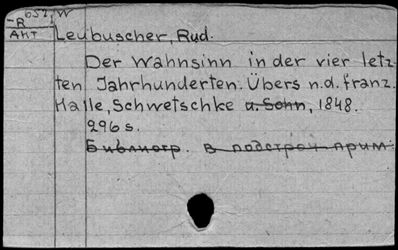 -R 051/W
AHT Leubuscher, Rud.
Der Wahnsinn in der vier letz-
ten Jahrhunderten. Übers n.d. franz.
Halle, Schwetschke u. Sohn, 1848.
296 s.
Библиогр. в подстроч прим.